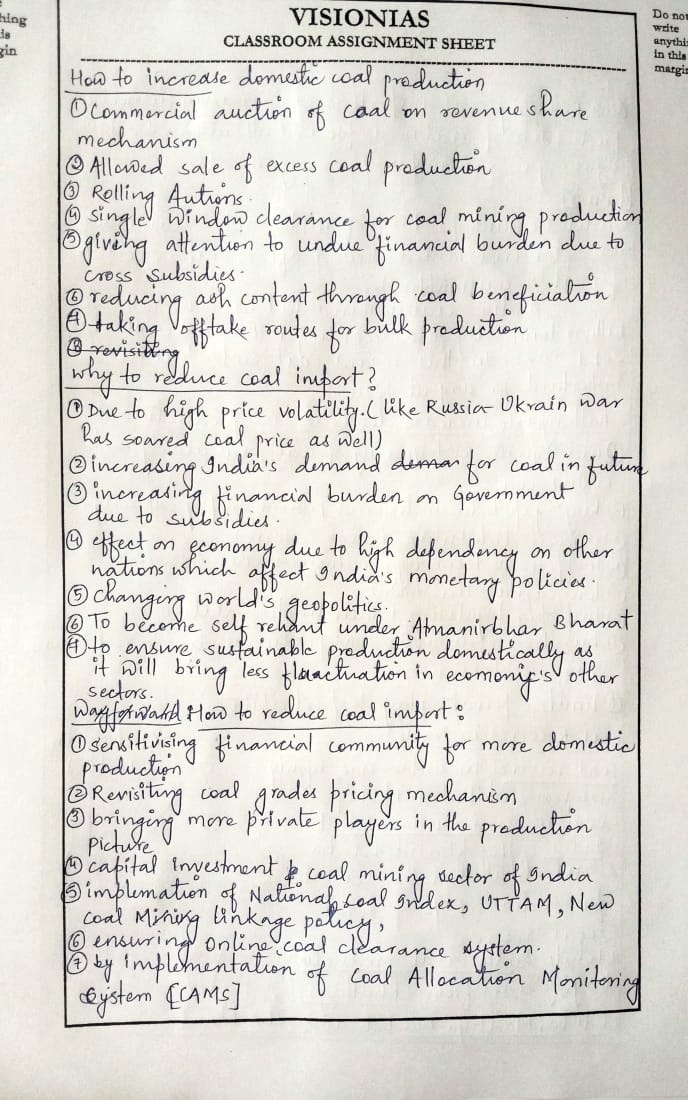 hing
is
gin
VISIONIAS
CLASSROOM ASSIGNMENT SHEET
Do not
write
anythi
in this
margin
How to increase domestic coal production
① Commercial auction of coal on revenue share
mechanism
② Allowed sale of excess coal production
③ Rolling Autions.
④ single window clearance for coal mining production
⑤ giving attention to undue financial burden due to
cross subsidies.
⑥ reducing ash content through coal beneficiation
⑦ taking offtake routes for bulk production
⑧ revisiting
Why to reduce coal import?
① Due to high price volatility. (like Russia-Ukrain war
has soared coal price as well)
② increasing India's demand deman for coal in future
③ increasing financial burden on Government
due to subsidies.
④ effect on economy due to high dependency on other
nations which affect India's monetary policies.
⑤ changing world's geopolitics.
⑥ To become self reliant under Atmanirbhar Bharat
⑦ to ensure sustainable production domestically as
it will bring less in other
sectors.
Way forward How to reduce coal import:
① sensitivising financial community for more domestic
production
② Revisiting coal grades pricing mechanism
③ bringing more private players in the production
picture
④ capital investment coal mining sector of India
⑤ implemation of National coal Index, UTTAM, New
coal Mining linkage policy,
⑥ ensuring online coal clearance system.
⑦ by implementation of coal Allocation Monitoring
System [CAMS]